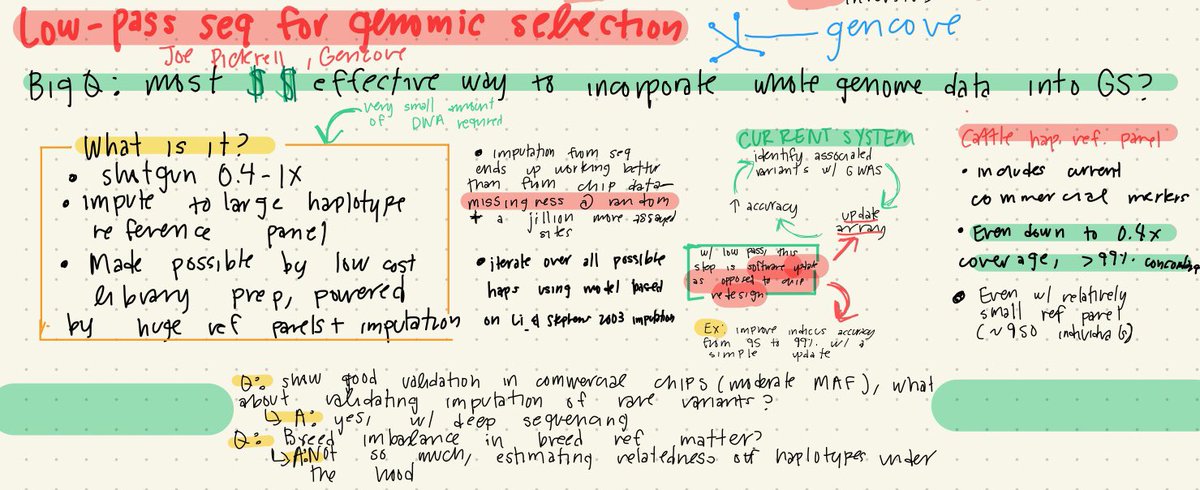 Low-pass seq for genomic selection
gencove
Joe Pickrell, Gencove
Big Q: most $$ effective way to incorporate whole genome data into GS?
very small amount
of DNA required
What is it?
• shutgun 0.4-1x
• impute to large haplotype
reference panel
• Made possible by low cost
library prep, powered
by huge ref panels + imputation
• imputation from seq
ends up working better
than from chip data-
missingness @ random
+ a jillion more assayed
sites
• iterate over all possible
haps using model based
on Li & Stephens 2003 imputation
CURRENT SYSTEM
identify associated
variants w/ GWAS
↑ accuracy
update
array
w/ low pass, this
step is software updat
as opposed to chip
redesign
Ex: improve indicus accuracy
from 95 to 99% w/ a
simple update
Cattle hap. ref. panel
• includes current
commercial merkers
• Even down to 0.4x
coverage, >99%
• Even w/ relatively
small ref panel
(~950 individuals)
Q: show good validation in commercial chips (moderate MAF), what
about validating imputation of rare variants?
↳ A: yes, w/ deep sequencing
Q: Breed imbalance in breed ref matter?
↳ A: Not so much, estimating relatedness of haplotypes under
the hood